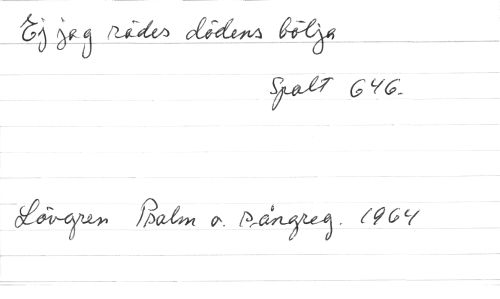 Ej jag rädes dödens bölja
Spalt 646.
Lövgren Psalm o. sångreg. 1964